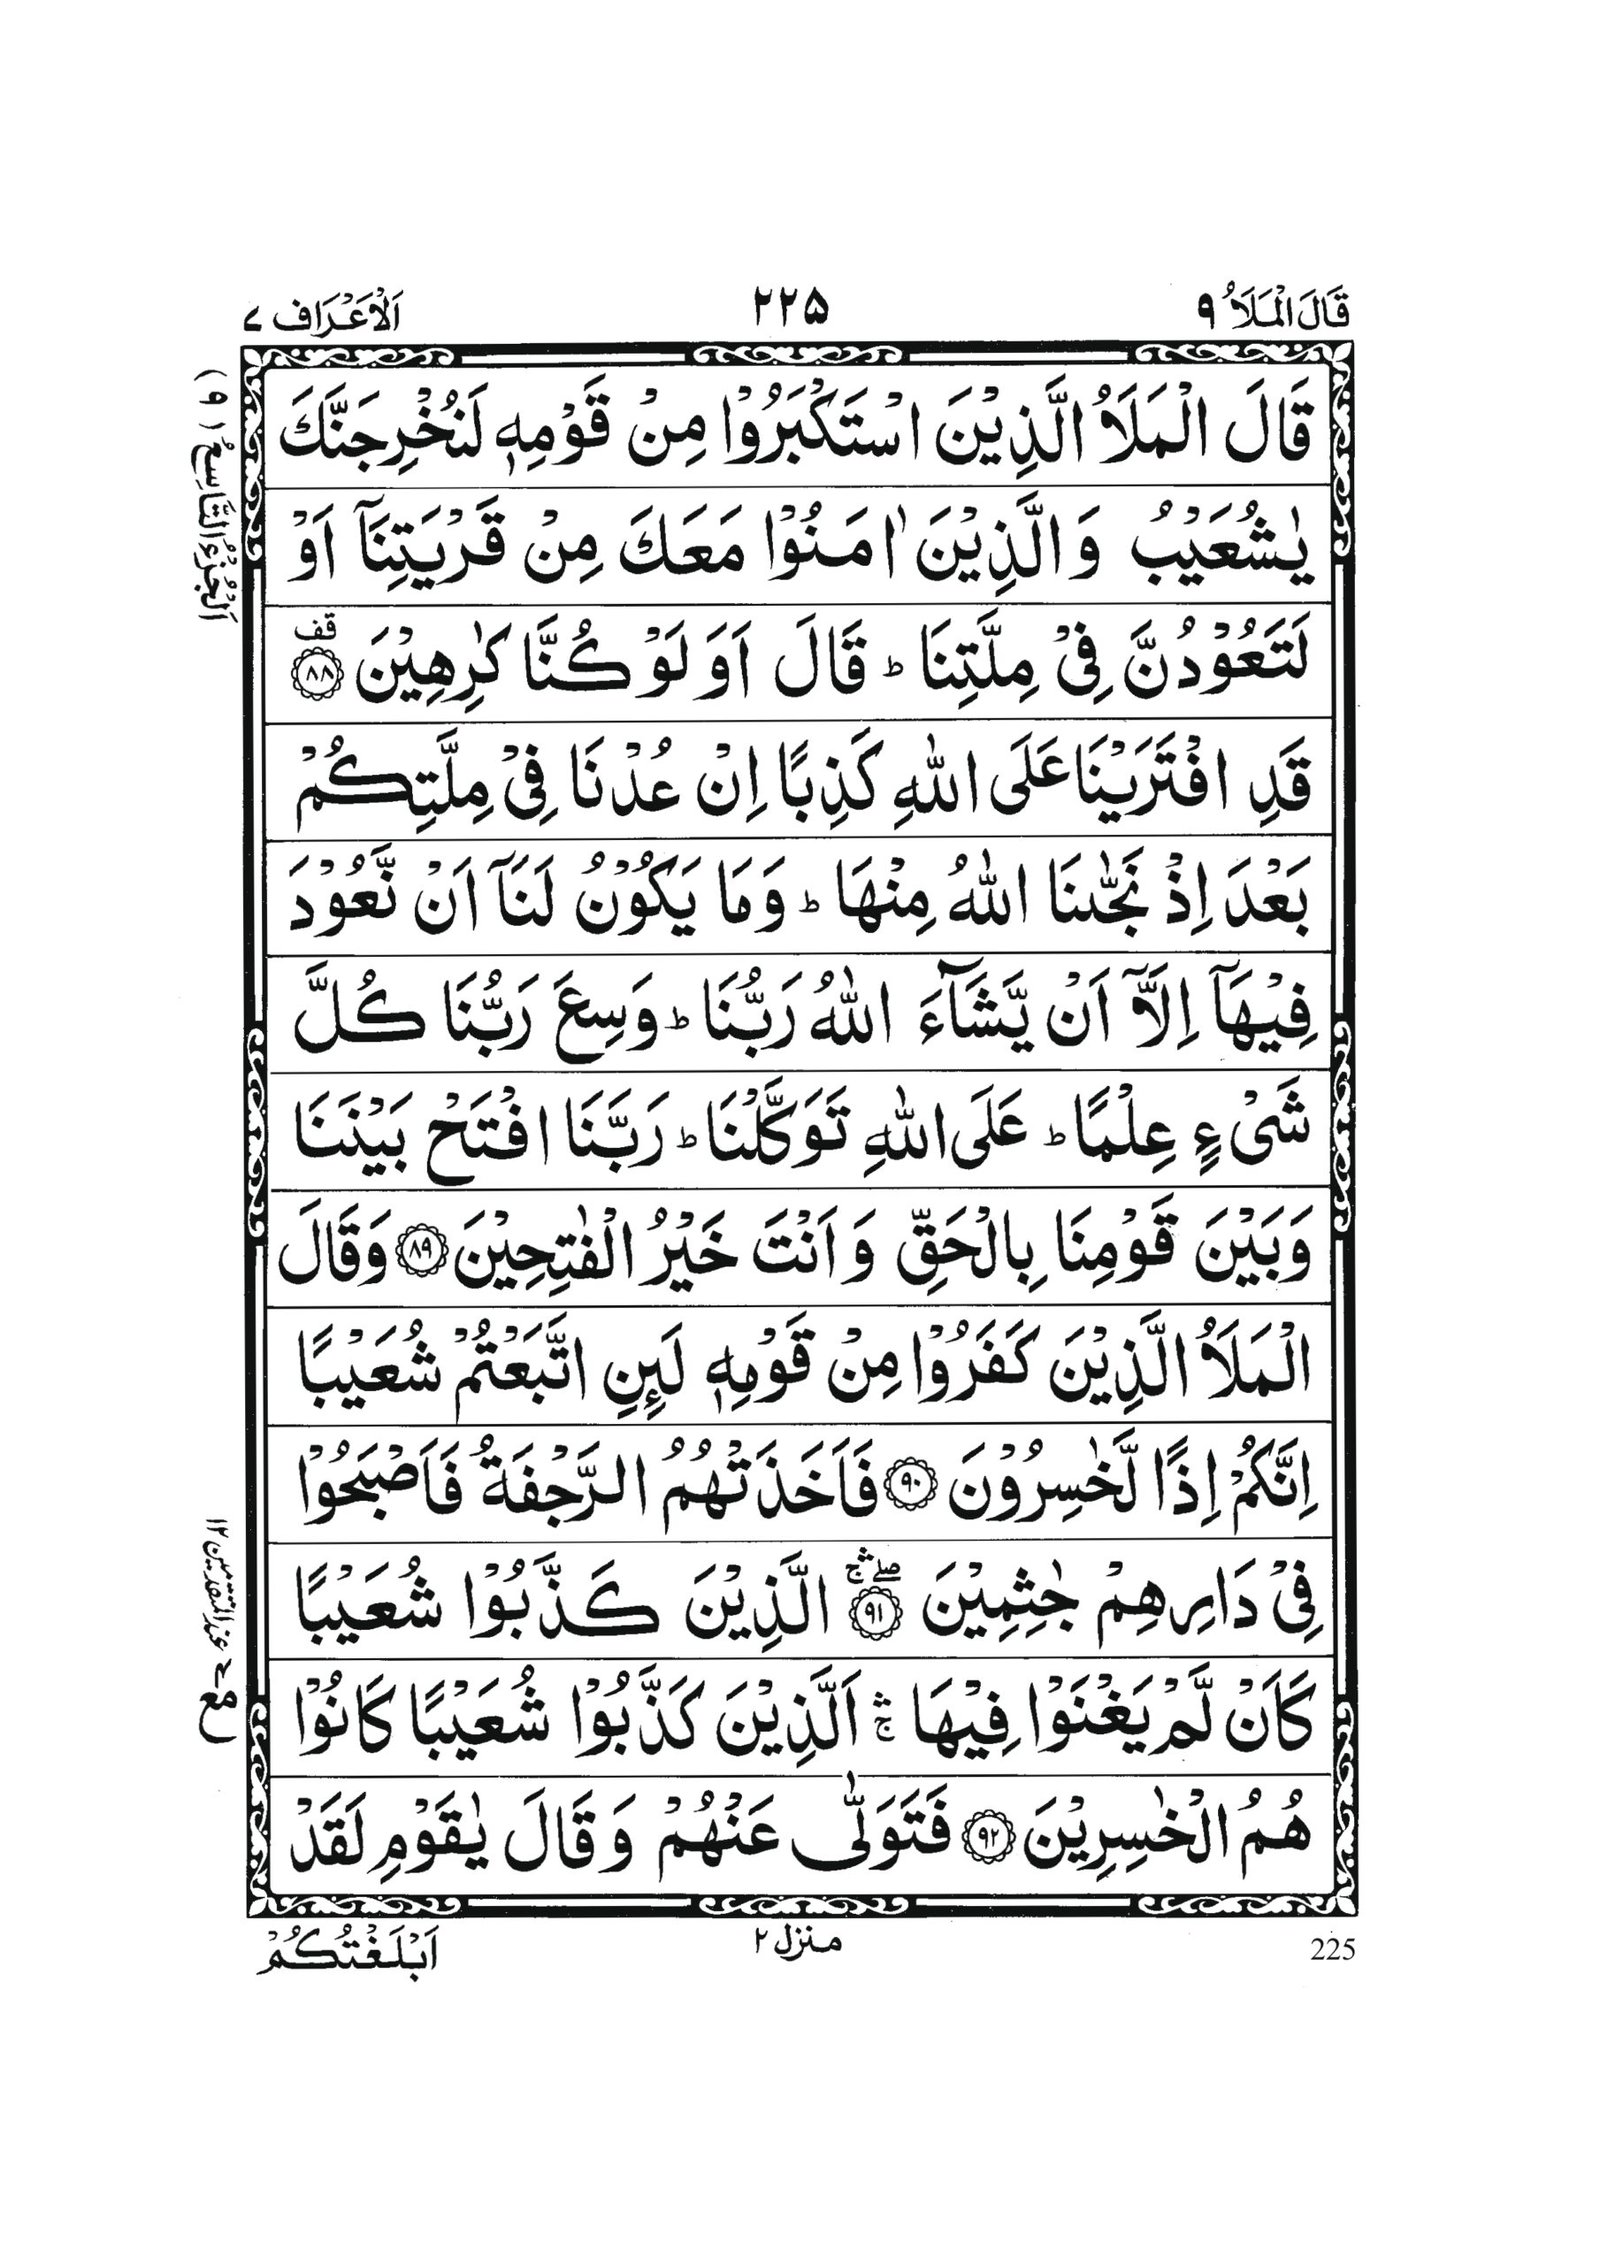 قَالَ الْمَلَاُ ۹
۲۲۵
اَلْاَعْرَاف ۷
اَلْجُزْءُ التَّاسِعُ (۹)
قَالَ الْمَلَاُ الَّذِيْنَ اسْتَكْبَرُوْا مِنْ قَوْمِهٖ لَنُخْرِجَنَّكَ
يٰشُعَيْبُ وَالَّذِيْنَ اٰمَنُوْا مَعَكَ مِنْ قَرْيَتِنَاۤ اَوْ
لَتَعُوْدُنَّ فِيْ مِلَّتِنَا ؕ قَالَ اَوَلَوْ كُنَّا كٰرِهِيْنَ ۟ قف ﴿۸۸﴾
قَدِ افْتَرَيْنَا عَلَى اللّٰهِ كَذِبًا اِنْ عُدْنَا فِيْ مِلَّتِكُمْ
بَعْدَ اِذْ نَجّٰىنَا اللّٰهُ مِنْهَا ؕ وَمَا يَكُوْنُ لَنَاۤ اَنْ نَّعُوْدَ
فِيْهَاۤ اِلَّاۤ اَنْ يَّشَآءَ اللّٰهُ رَبُّنَا ؕ وَسِعَ رَبُّنَا كُلَّ
شَیْءٍ عِلْمًا ؕ عَلَى اللّٰهِ تَوَكَّلْنَا ؕ رَبَّنَا افْتَحْ بَيْنَنَا
وَبَيْنَ قَوْمِنَا بِالْحَقِّ وَاَنْتَ خَيْرُ الْفٰتِحِيْنَ ﴿۸۹﴾ وَقَالَ
الْمَلَاُ الَّذِيْنَ كَفَرُوْا مِنْ قَوْمِهٖ لَئِنِ اتَّبَعْتُمْ شُعَيْبًا
اِنَّكُمْ اِذًا لَّخٰسِرُوْنَ ﴿۹۰﴾ فَاَخَذَتْهُمُ الرَّجْفَةُ فَاَصْبَحُوْا
فِيْ دَارِهِمْ جٰثِمِيْنَ ﴿۹۱﴾ ۛۚۖ الَّذِيْنَ كَذَّبُوْا شُعَيْبًا
كَاَنْ لَّمْ يَغْنَوْا فِيْهَا ۛۚ اَلَّذِيْنَ كَذَّبُوْا شُعَيْبًا كَانُوْا
هُمُ الْخٰسِرِيْنَ ﴿۹۲﴾ فَتَوَلّٰى عَنْهُمْ وَقَالَ يٰقَوْمِ لَقَدْ
مع ۷ عند المتقدمين ۱۲
اَبْلَغْتُكُمْ
منزل ۲
225